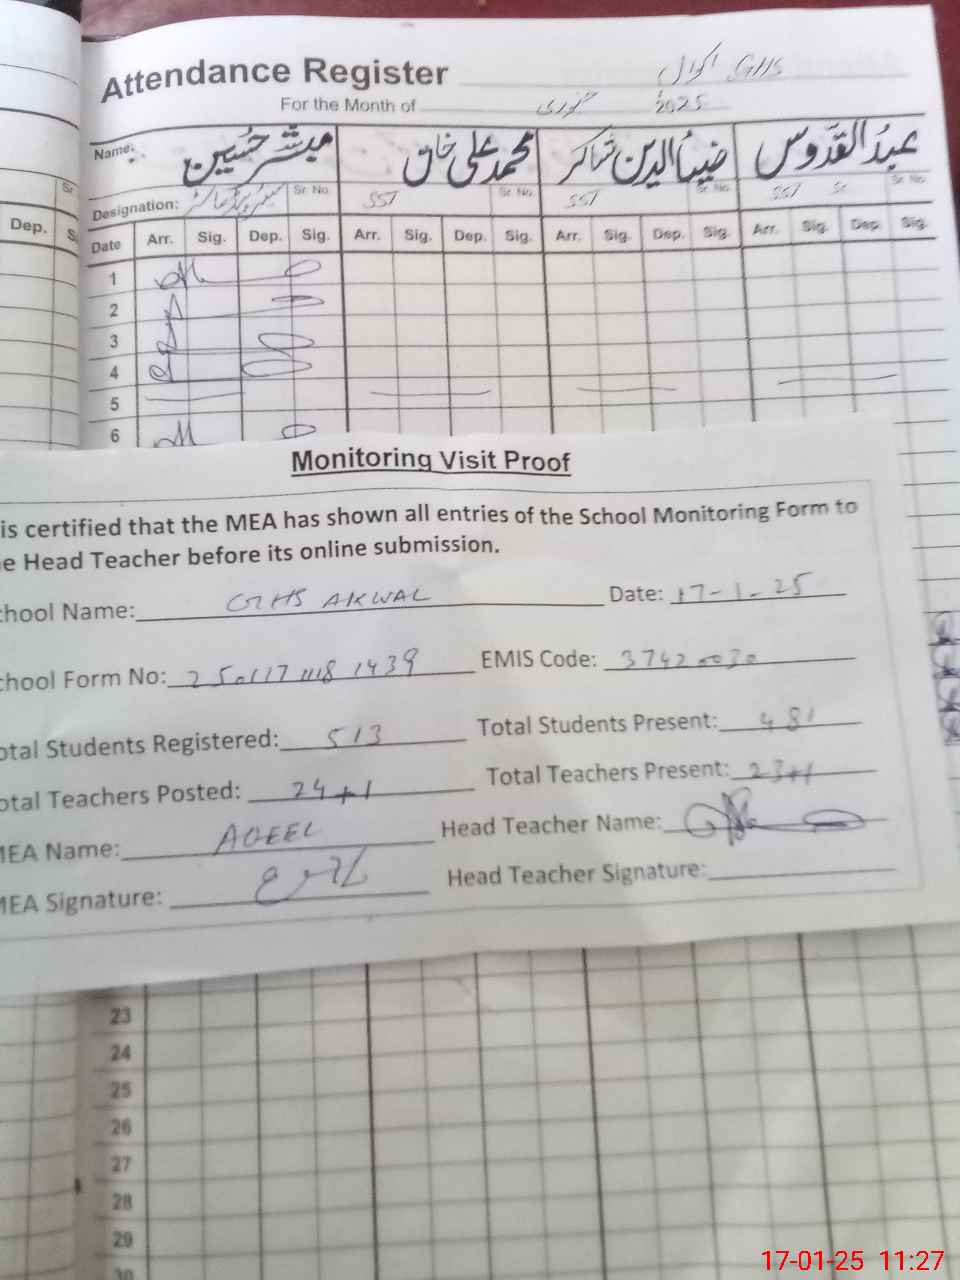 Attendance Register GHS اکوال
For the Month of جنوری 2025
Name: مبشر حسین محمد علی خان ضیاالدین شاکر عبدالقدوس
Designation: Sr No. SST Sr No. SST Sr No. SST Sc Sr No.
Date Arr. Sig. Dep. Sig. Arr. Sig. Dep. Sig. Arr. Sig. Dep. Sig. Arr. Sig. Dep. Sig.
Dep.
1
2
3
4
5
6
Monitoring Visit Proof
is certified that the MEA has shown all entries of the School Monitoring Form to
e Head Teacher before its online submission.
chool Name: GHS AKWAL Date: 17-1-25
chool Form No: EMIS Code: 37420030
otal Students Registered: 513 Total Students Present: 481
otal Teachers Posted: 24+1 Total Teachers Present: 23+1
MEA Name: AQEEL Head Teacher Name:
MEA Signature: Head Teacher Signature:
23
24
25
26
27
28
29
30
17-01-25 11:27